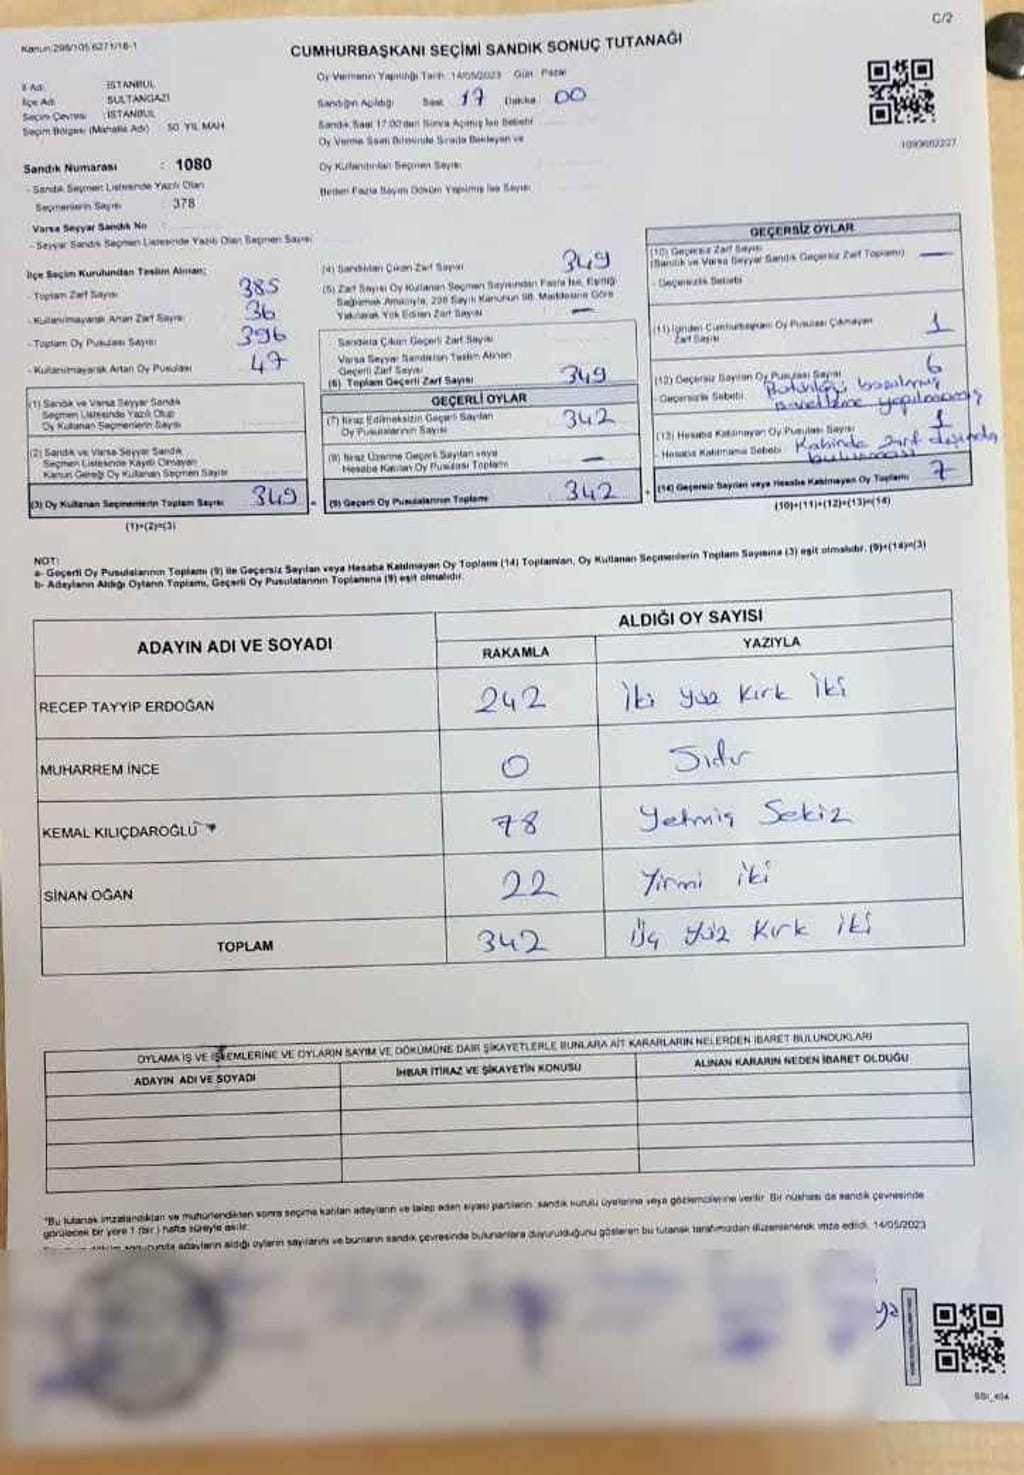 Kanun:298/105 6271/18-1
C/2
CUMHURBAŞKANI SEÇİMİ SANDIK SONUÇ TUTANAĞI
İl Adı : İSTANBUL
İlçe Adı : SULTANGAZİ
Seçim Çevresi : İSTANBUL
Seçim Bölgesi (Mahalle Adı) : 50. YIL MAH
Oy Vermenin Yapıldığı Tarih : 14/05/2023 Gün : Pazar
Sandığın Açıldığı Saat 17 Dakika 00
Sandık Saat 17:00'den Sonra Açılmış İse Sebebi
Oy Verme Saati Bitiminde Sırada Bekleyen ve
Oy Kullandırılan Seçmen Sayısı
Birden Fazla Sayım Döküm Yapılmış İse Sayısı
1093602227
Sandık Numarası : 1080
- Sandık Seçmen Listesinde Yazılı Olan
Seçmenlerin Sayısı : 378
Varsa Seyyar Sandık No
- Seyyar Sandık Seçmen Listesinde Yazılı Olan Seçmen Sayısı
İlçe Seçim Kurulundan Teslim Alınan;
- Toplam Zarf Sayısı 385
- Kullanılmayarak Artan Zarf Sayısı 36
- Toplam Oy Pusulası Sayısı 396
- Kullanılmayarak Artan Oy Pusulası 47
(1) Sandık ve Varsa Seyyar Sandık
Seçmen Listesinde Yazılı Olup
Oy Kullanan Seçmenlerin Sayısı
(2) Sandık ve Varsa Seyyar Sandık
Seçmen Listesinde Kayıtlı Olmayan
Kanun Gereği Oy Kullanan Seçmen Sayısı
(3) Oy Kullanan Seçmenlerin Toplam Sayısı 349
(1)+(2)=(3)
(4) Sandıktan Çıkan Zarf Sayısı 349
(5) Zarf Sayısı Oy Kullanan Seçmen Sayısından Fazla İse, Eşitliği
Sağlamak Amacıyla, 298 Sayılı Kanunun 98. Maddesine Göre
Yakılarak Yok Edilen Zarf Sayısı —
Sandıkta Çıkan Geçerli Zarf Sayısı
Varsa Seyyar Sandıktan Teslim Alınan
Geçerli Zarf Sayısı
(6) Toplam Geçerli Zarf Sayısı 349
GEÇERLİ OYLAR
(7) İtiraz Edilmeksizin Geçerli Sayılan
Oy Pusulalarının Sayısı 342
(8) İtiraz Üzerine Geçerli Sayılan veya
Hesaba Katılan Oy Pusulası Toplamı —
(9) Geçerli Oy Pusulalarının Toplamı 342
GEÇERSİZ OYLAR
(10) Geçersiz Zarf Sayısı
(Sandık ve Varsa Seyyar Sandık Geçersiz Zarf Toplamı) —
- Geçersizlik Sebebi
(11) İçinden Cumhurbaşkanı Oy Pusulası Çıkmayan
Zarf Sayısı 1
(12) Geçersiz Sayılan Oy Pusulası Sayısı 6
- Geçersizlik Sebebi basılmış
yapılmamış
(13) Hesaba Katılmayan Oy Pusulası Sayısı 1
- Hesaba Katılmama Sebebi Kabinde zarf dışında
bulunması
(14) Geçersiz Sayılan veya Hesaba Katılmayan Oy Toplamı 7
(10)+(11)+(12)+(13)=(14)
NOT:
a- Geçerli Oy Pusulalarının Toplamı (9) ile Geçersiz Sayılan veya Hesaba Katılmayan Oy Toplamı (14) Toplamları, Oy Kullanan Seçmenlerin Toplam Sayısına (3) eşit olmalıdır, (9)+(14)=(3)
b- Adayların Aldığı Oyların Toplamı, Geçerli Oy Pusulalarının Toplamına (9) eşit olmalıdır.
ADAYIN ADI VE SOYADI
ALDIĞI OY SAYISI
RAKAMLA YAZIYLA
RECEP TAYYİP ERDOĞAN 242 İki yüz Kırk İki
MUHARREM İNCE 0 Sıfır
KEMAL KILIÇDAROĞLU 78 Yetmiş Sekiz
SİNAN OĞAN 22 Yirmi iki
TOPLAM 342 Üç yüz Kırk iki
OYLAMA İŞ VE İŞLEMLERİNE VE OYLARIN SAYIM VE DÖKÜMÜNE DAİR ŞİKAYETLERLE BUNLARA AİT KARARLARIN NELERDEN İBARET BULUNDUKLARI
ADAYIN ADI VE SOYADI
İHBAR İTİRAZ VE ŞİKAYETİN KONUSU
ALINAN KARARIN NEDEN İBARET OLDUĞU
*Bu tutanak imzalandıktan ve mühürlendikten sonra seçime katılan adayların ve talep eden siyasi partilerin sandık kurulu üyelerine veya gözlemcilerine verilir. Bir nüshası da sandık çevresinde
görülecek bir yere 1 (bir) hafta süreyle asılır.
adayların aldığı oyların sayılarını ve bunların sandık çevresinde bulunanlara duyurulduğunu gösteren bu tutanak tarafımızdan düzenlenerek imza edildi. 14/05/2023